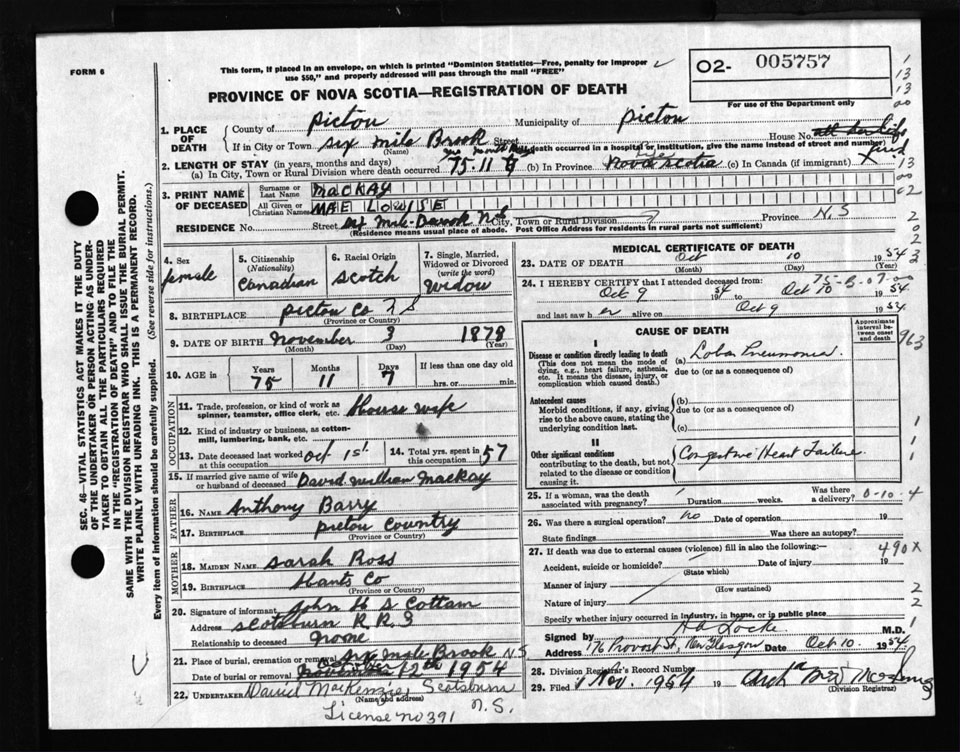 FORM 6
This form, if placed in an envelope, on which is printed "Dominion Statistics—Free, penalty for improper
use $50," and properly addressed will pass through the mail "FREE"
O2- 005757
For use of the Department only
PROVINCE OF NOVA SCOTIA—REGISTRATION OF DEATH
1. PLACE OF DEATH
County of Pictou Municipality of Pictou
If in City or Town Six Mile Brook Street House No. all her life
(Name) (If death occurred in a hospital or institution, give the name instead of street and number)
2. LENGTH OF STAY (in years, months and days)
(a) In City, Town or Rural Division where death occurred 75-11 (b) In Province Nova Scotia (c) In Canada (if immigrant)
3. PRINT NAME OF DECEASED
Surname or Last Name MACKAY
All Given or Christian Names MAE LOUISE
RESIDENCE No. Street City, Town or Rural Division Province N.S
(Residence means usual place of abode. Post Office Address for residents in rural parts not sufficient)
4. Sex female
5. Citizenship (Nationality) Canadian
6. Racial Origin Scotch
7. Single, Married, Widowed or Divorced (write the word) Widow
8. BIRTHPLACE Pictou Co N S
(Province or Country)
9. DATE OF BIRTH November 3 1878
(Month) (Day) (Year)
10. AGE in Years Months Days If less than one day old
75 11 7 hrs. or min.
OCCUPATION
11. Trade, profession, or kind of work as spinner, teamster, office clerk, etc. House wife
12. Kind of industry or business, as cotton-mill, lumbering, bank, etc.
13. Date deceased last worked at this occupation Oct 1st
14. Total yrs. spent in this occupation 57
15. If married give name of wife or husband of deceased David William MacKay
FATHER
16. NAME Anthony Barry
17. BIRTHPLACE Pictou Country
(Province or Country)
MOTHER
18. MAIDEN NAME Sarah Ross
19. BIRTHPLACE Hants Co
(Province or Country)
20. Signature of informant John H S Cottam
Address Scotsburn R.R.3
Relationship to deceased None
21. Place of burial, cremation or removal Six Mile Brook N.S
Date of burial or removal 12th 1954
22. UNDERTAKER David MacKenzie Scotsburn N.S.
(Name and address)
License no 391
MEDICAL CERTIFICATE OF DEATH
23. DATE OF DEATH Oct 10 1954
(Month) (Day) (Year)
24. I HEREBY CERTIFY that I attended deceased from:
Oct 9 1954 to Oct 10 1954
and last saw h er alive on Oct 9 1954
CAUSE OF DEATH
Approximate interval between onset and death
I
Disease or condition directly leading to death
(This does not mean the mode of dying, e.g., heart failure, asthenia, etc. It means the disease, injury, or complication which caused death.)
(a) Lobar Pneumonia
due to (or as a consequence of)
Antecedent causes
Morbid conditions, if any, giving rise to the above cause, stating the underlying condition last.
(b)
due to (or as a consequence of)
(c)
II
Other significant conditions contributing to the death, but not related to the disease or condition causing it.
Congestive Heart Failure
25. If a woman, was the death associated with pregnancy? Duration weeks. Was there a delivery? 0-10-4
26. Was there a surgical operation? no Date of operation 19
State findings Was there an autopsy?
27. If death was due to external causes (violence) fill in also the following:— 490X
Accident, suicide or homicide? Date of injury 19
(State which)
Manner of injury
(How sustained)
Nature of injury
Specify whether injury occurred in Industry, in home, or in public place
Signed by Locke M.D.
Address 176 Provost St, New Glasgow Date Oct 10 1954
28. Division Registrar's Record Number
29. Filed 1 Nov. 1954 19
(Division Registrar)
SEC. 46—VITAL STATISTICS ACT MAKES IT THE DUTY
OF THE UNDERTAKER OR PERSON ACTING AS UNDER-
TAKER TO OBTAIN ALL THE PARTICULARS REQUIRED
IN THE "REGISTRATION OF DEATH" AND TO FILE THE
SAME WITH THE DIVISION REGISTRAR WHO SHALL ISSUE THE BURIAL PERMIT.
WRITE PLAINLY WITH UNFADING INK. THIS IS A PERMANENT RECORD.
Every item of information should be carefully supplied. (See reverse side for instructions.)